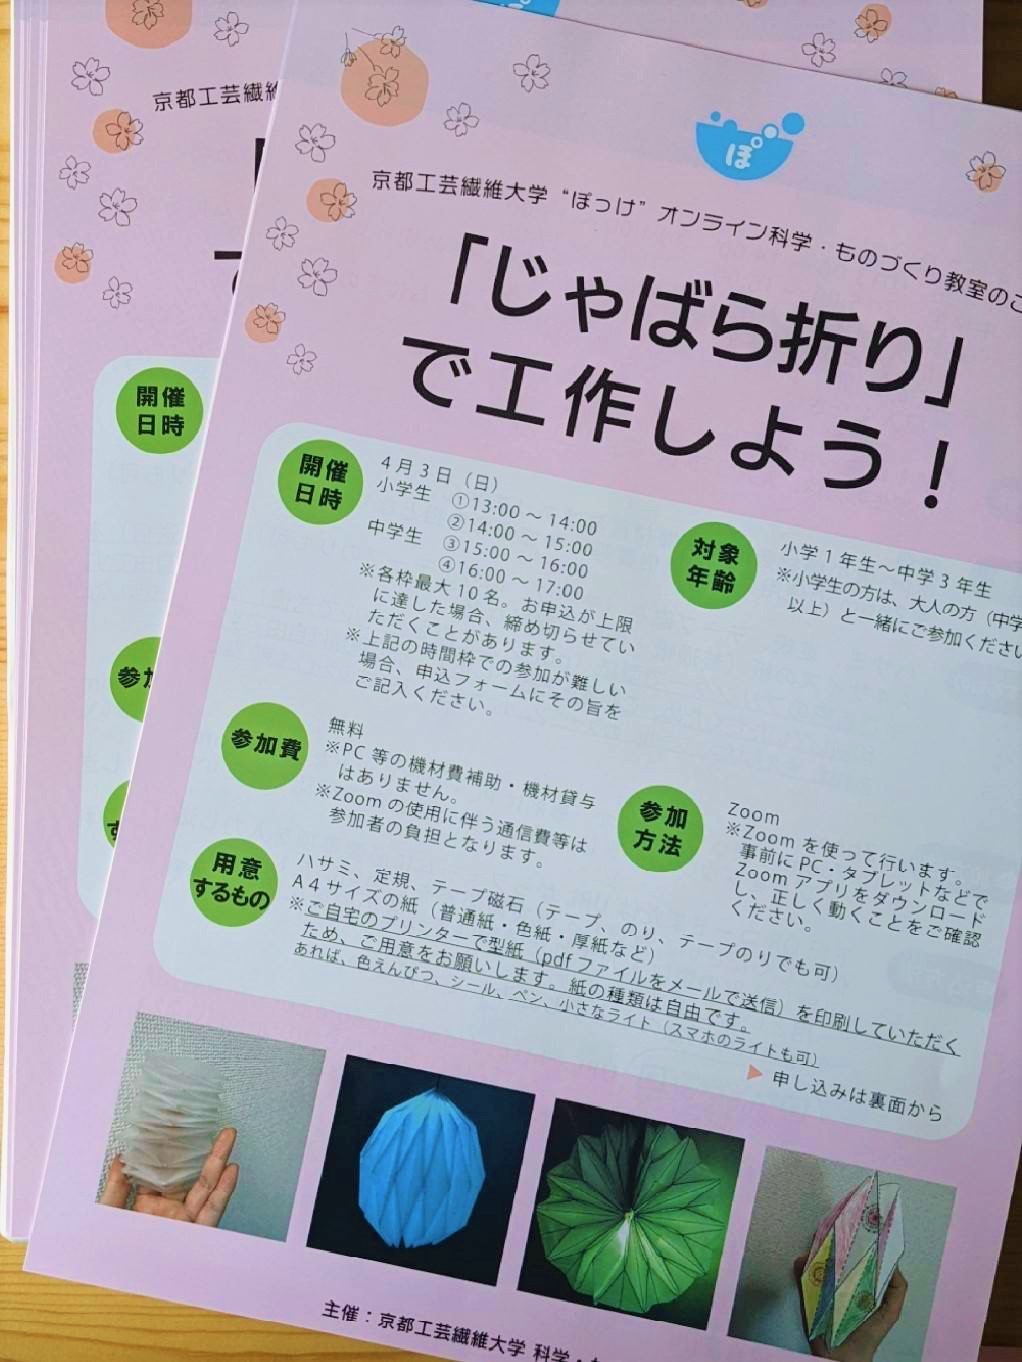 ぽ
京都工芸繊維大学 “ぽっけ” オンライン科学・ものづくり教室のご
「じゃばら折り」
で工作しよう！
開催
日時
4月3日（日）
小学生 ①13:00 ～ 14:00
②14:00 ～ 15:00
中学生 ③15:00 ～ 16:00
④16:00 ～ 17:00
※各枠最大10名。お申込が上限
に達した場合、締め切らせてい
ただくことがあります。
※上記の時間枠での参加が難しい
場合、申込フォームにその旨を
ご記入ください。
対象
年齢
小学1年生～中学3年生
※小学生の方は、大人の方（中学
以上）と一緒にご参加ください
参加費
無料
※PC等の機材費補助・機材貸与
はありません。
※Zoomの使用に伴う通信費等は
参加者の負担となります。
参加
方法
Zoom
※Zoomを使って行います。
事前にPC・タブレットなどで
Zoomアプリをダウンロード
し、正しく動くことをご確認
ください。
用意
するもの
ハサミ、定規、テープ磁石（テープ、のり、テープのりでも可）
A4サイズの紙（普通紙・色紙・厚紙など）
※ご自宅のプリンターで型紙（pdfファイルをメールで送信）を印刷していただく
ため、ご用意をお願いします。紙の種類は自由です。
あれば、色えんぴつ、シール、ペン、小さなライト（スマホのライトも可）
▶ 申し込みは裏面から
主催：京都工芸繊維大学 科学・
京都工芸繊
開催
日時